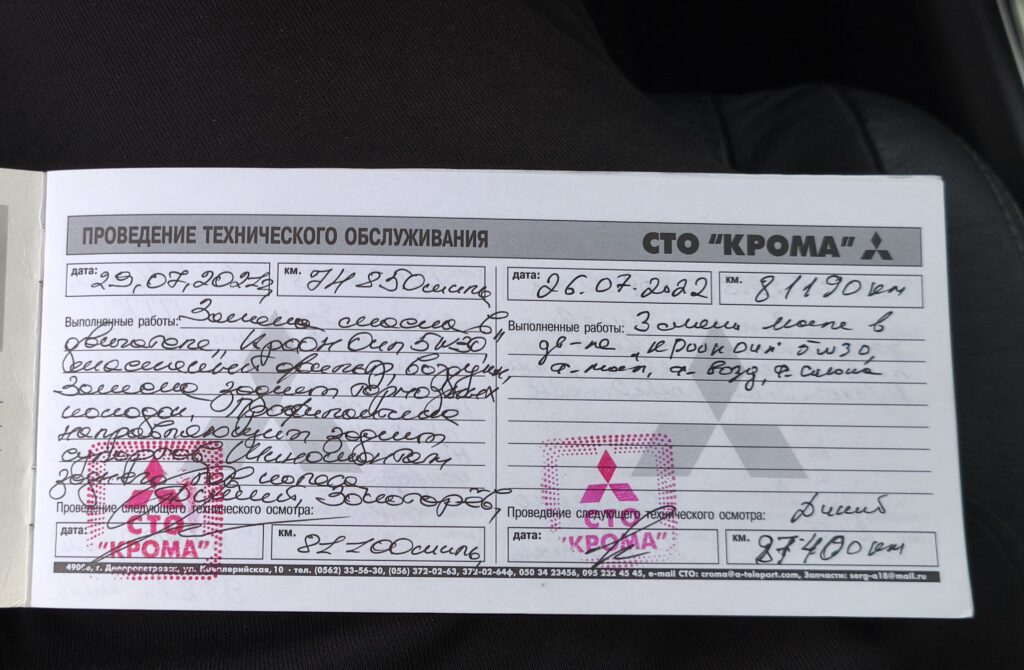 ПРОВЕДЕНИЕ ТЕХНИЧЕСКОГО ОБСЛУЖИВАНИЯ
СТО "КРОМА"
дата: 29.07.202
км. 74850 миль
Выполненные работы: Замена масла в
двигателе „Кроон Оил 5w30",
масляный фильтр, воздушн,
Замена задних тормозных
колодок, Профилактика
направляющих задних
суппортов. Шиномонтаж
заднего колеса
Золотарёв
Проведение следующего технического осмотра:
дата:
км. 81100 миль
СТО
"КРОМА"
дата: 26.07.2022
км. 81190 км
Выполненные работы: Замена масла в
дв-ле „Кроон Оил" 5w30,
ф-масл, ф-возд, ф-салона
Проведение следующего технического осмотра:
дата:
км. 87400 км
СТО
"КРОМА"
49000, г. Днепропетровск, ул. Кавалерийская, 10 · тел. (0562) 33-56-30, (056) 372-02-63, 372-02-64ф, 050 34 23456, 095 232 45 45, e-mail СТО: croma@a-teleport.com, Запчасти: serg-a18@mail.ru